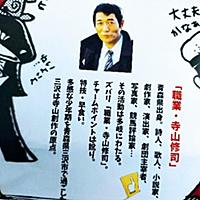 「職業・寺山修司」
青森県出身、詩人、歌人、小説家、
劇作家、演出家、劇団主宰者、
写真家、競馬評論家…
その活動は多岐にわたる。
ズバリ、「職業・寺山修司」。
チャームポイントは訛り。
特技・早食い。
多感な少年期を青森県三沢市で過ごし
三沢は寺山創作の原点。
大丈夫
かなあ